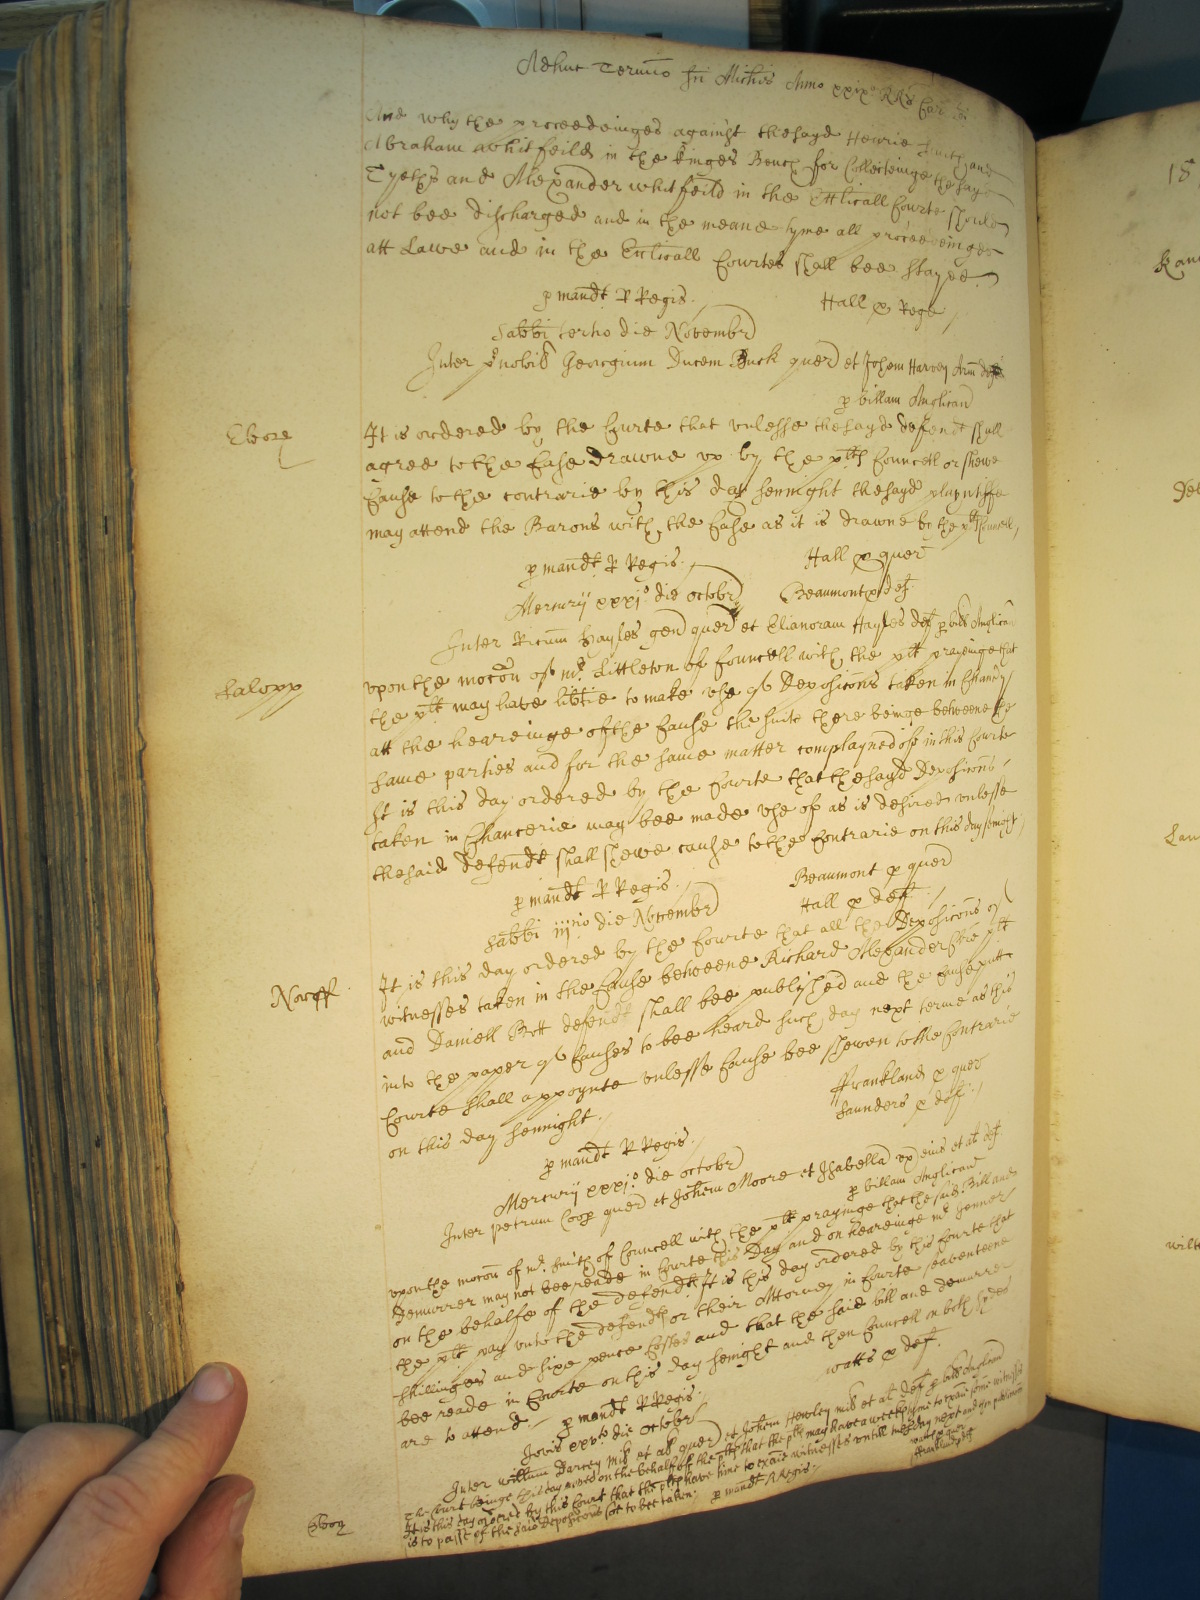 Adhuc Termio Sci Michis Anno xxixo RRs Car &c
And why the proceedeinges against thesayd Henrie Smith and
Abraham whitfeild in the kinges Bench for Collecteinge the sayd
Tyethes and Alexander whitfeild in the Ecclicall Courte should
not bee discharged and in the meane tyme all proceedeinges
att Lawe and in the Ecclicall Courtes shall bee stayed
p mandt R Regis
Hall p Rege
Sabbi tertio die Novembr
Inter pnobil Georgium Ducem Buck quer et Johem Harvey Arm def
p billam Anglican
Ebor
It is ordered by the Courte that unlesse thesayd defendt shall
agree to the Case drawne up by the plts Councell or shewe
Cause to the contrarie by this day sennight thesayd playntiffe
may attend the Barons with the Case as it is drawne by the plts Councell
p mandt R Regis
Hall p quer
Mercurij xxxjo die octobr
Beaumont p def
Inter Ricum Hayles gen quer et Elianoram Hayles def p bill Anglican
Salopp
upon the mocon of mr Littleton of Councell with the plt prayeinge that
the plt may have libtie to make use of Deposicons taken in Chancery
att the heareinge of the Cause the suite there beinge betweene the
same parties and for the same matter complayned of in this Courte
It is this day ordered by the Courte that thesayd Deposicons
taken in Chancerie may bee made use of as is desired unlesse
thesaid defendt shall shewe cause to the Contrarie on this day sennight
p mandt R Regis
Beaumont p quer
Sabbi iijtio die Novembr
Hall p def
Norff
It is this day ordered by the Courte that all the Deposicons of
witnesses taken in the Cause betweene Richard Alexander plt
and Daniell Bett defendt shall bee published and the Cause putt
into the paper of Causes to bee heard such day next terme as this
Courte shall appoynte unlesse Cause bee shewen to the Contrarie
on this day sennight
Frankland p quer
p mandt R Regis
Saunders p def
Mercurij xxxjo die octobr
Inter Petrum Coop quer et Johem Moore et Isabella ux eius et al def
p billam Anglican
upon the mocon of mr Smith of Councell with the plt prayinge that the said Bill and
Demurrer may not bee reade in Courte this Day and on heareinge mr Jenner
on the behalfe of the defendts It is this day ordered by this Courte that
the plt pay unto the defendts or their Attorney in Courte seaventeene
shillinges and sixe pence Costes and that the said bill and demurrer
bee reade in Courte on this day sennight and then Councell on both sydes
are to attend
watts p def
p mandt R Regis
Jovis xxvto die octobr
Inter willm Darcey mil et al quer et Johem Hewley mil et al def p bill Anglican
The Court beinge this day moved on the behalfe of the plts that the plts may have a weekes tyme to exaie some witnesses
It is this day ordered by this Court that the plts have time to exaie witnesses untill tuesday next and then publicacon
Ebor
is to passe of the said deposicons soe to bee taken
p mandt R Regis
watts p quer
Frankland p def